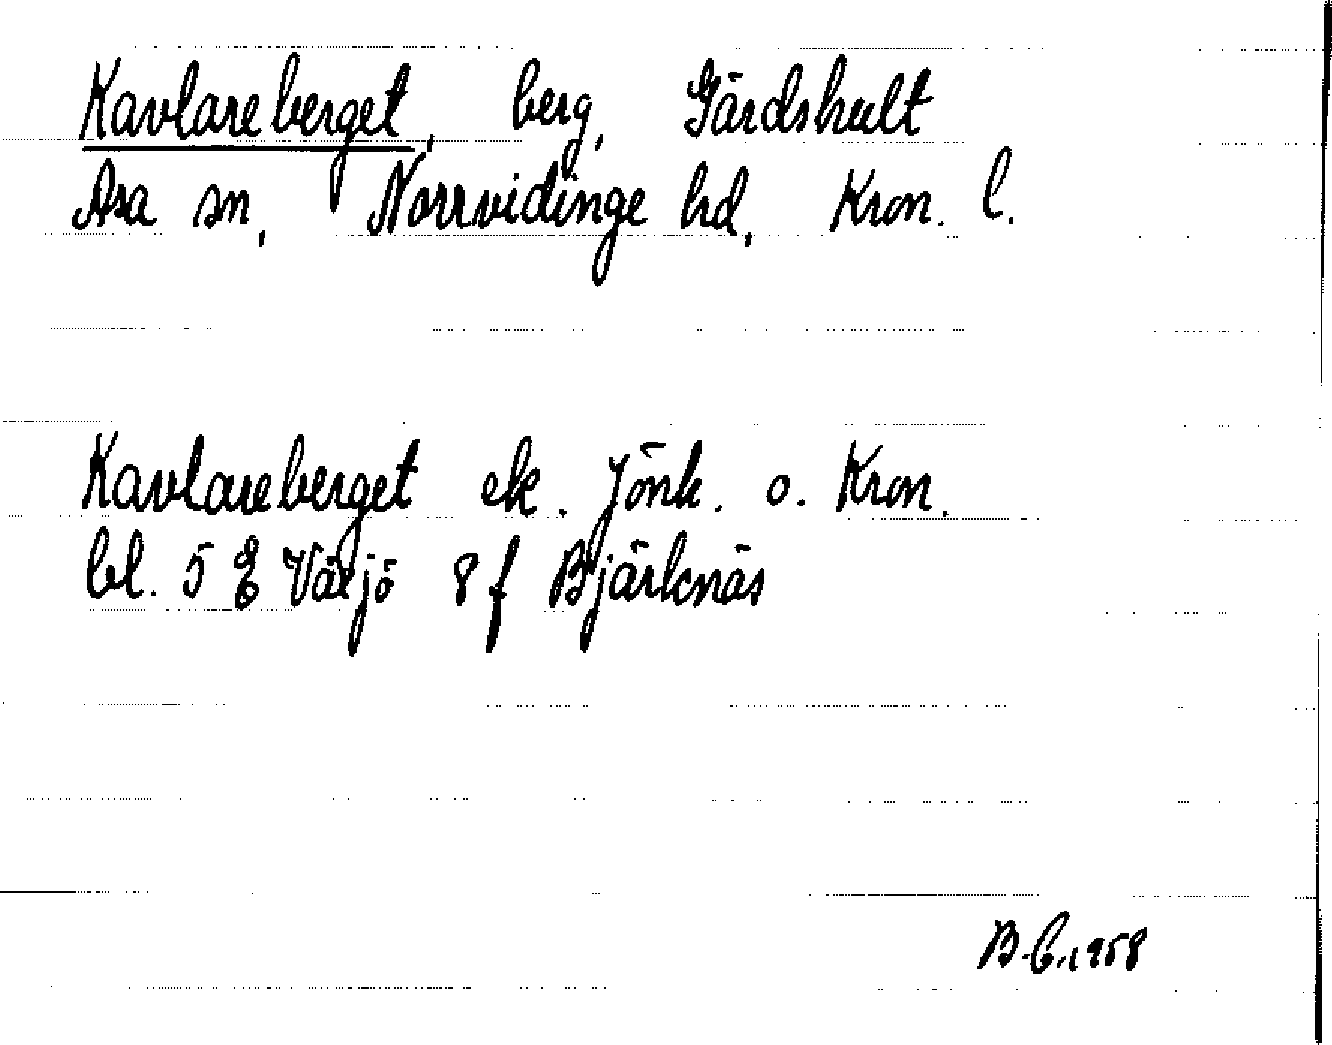 Kavlareberget, berg, Gärdshult
Asa sn, Norrvidinge hd, Kron. l.
Kavlareberget ek. Jönk. o. Kron.
bl. 5 E Växjö 8 f Bjärknäs
B.C. 1958